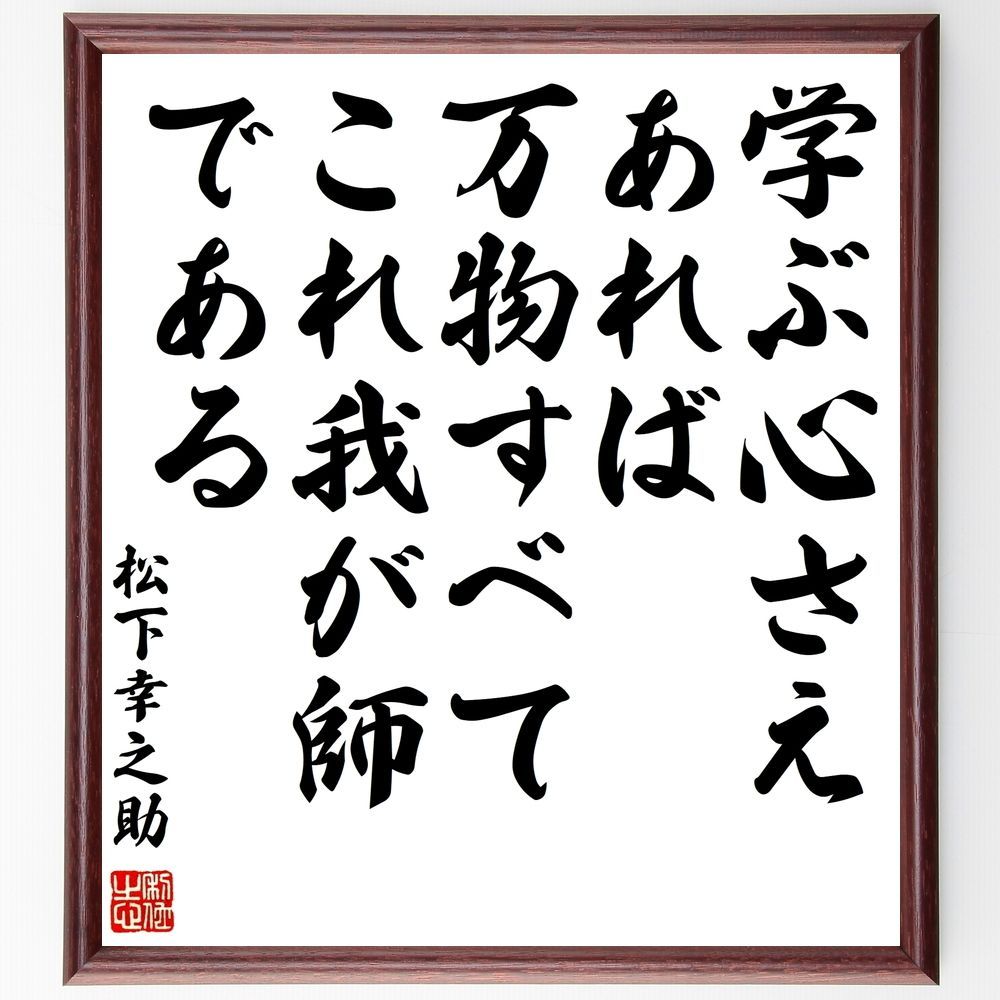 学ぶ心さえ
あれば
万物すべて
これ我が師
である
松下幸之助